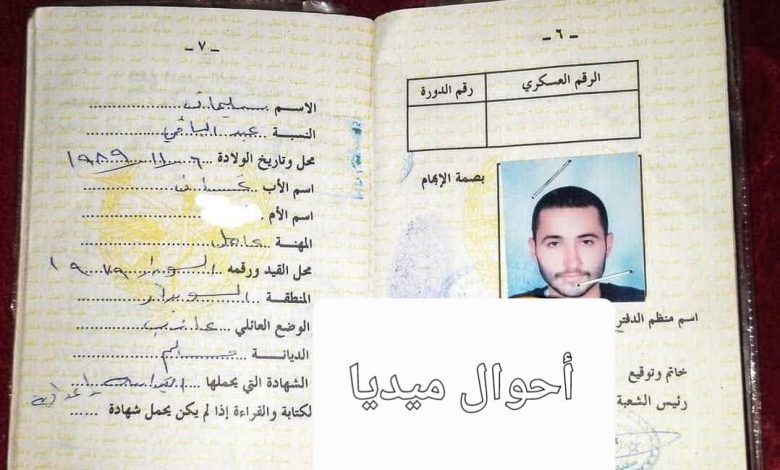 - ٦ -
الرقم العسكري
رقم الدورة
بصمة الإبهام
اسم منظم الدفتر
خاتم وتوقيع
رئيس الشعبة
- ٧ -
الاسم سليمان
النسبة عبد الباقي
محل وتاريخ الولادة ١٩٨٩
اسم الأب غسان
اسم الأم
المهنة عامل
محل القيد ورقمه
المنطقة السويداء
الوضع العائلي عازب
الديانة مسلم
الشهادة التي يحملها
لكتابة والقراءة إذا لم يكن يحمل شهادة
أحوال ميديا